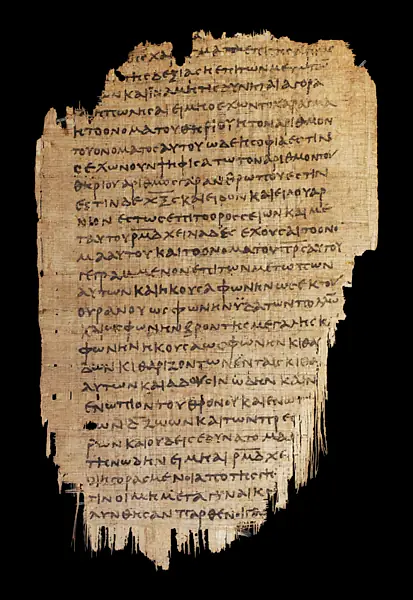 ϹΙ ΧΑΡΑΓΜΑ ΕΠΙ ΤΗϹ
ΤΗϹ ΔΕΞΙΑϹ Η ΕΠΙ ΤΩΝ ΜΕΤΩΠ
ΚΑΙ ΙΝΑ ΜΗ ΤΙϹ ΔΥΝΗΤΑΙ ΑΓΟΡΑ
ΕΙ ΜΗ Ο ΕΧΩΝ ΤΟ ΧΑΡΑΓΜΑ
Η ΤΟ ΟΝΟΜΑ ΤΟΥ ΘΗΡΙΟΥ Η ΤΟΝ ΑΡΙΘΜΟΝ
ΤΟΥ ΟΝΟΜΑΤΟϹ ΑΥΤΟΥ ΩΔΕ Η ϹΟΦΙΑ ΕϹΤΙΝ
Ο ΕΧΩΝ ΟΥΝ ΨΗΦΙϹΑΤΩ ΤΟΝ ΑΡΙΘΜΟΝ ΤΟΥ
ΘΗΡΙΟΥ ΑΡΙΘΜΟϹ ΓΑΡ ΑΝΘΡΩΠΟΥ ΕϹΤΙΝ
ΕϹΤΙΝ ΔΕ ΧΞϚ ΚΑΙ ΕΙΔΟΝ ΚΑΙ ΕΙΔΟΥ ΑΡ
ΝΙΟΝ ΕϹΤΩϹ ΕΠΙ ΤΟ ΟΡΟϹ ϹΕΙΩΝ ΚΑΙ ΜΕ
Τ ΑΥΤΟΥ ΡΜΔ ΧΕΙΛΙΑΔΕϹ ΕΧΟΥϹΑΙ ΤΟ ΟΝΟ
ΜΑ ΑΥΤΟΥ ΚΑΙ ΤΟ ΟΝΟΜΑ ΤΟΥ ΠΡϹ ΑΥΤΟΥ
ΓΕΓΡΑΜΜΕΝΟΝ ΕΠΙ ΤΩΝ ΜΕΤΩΠΩΝ
ΑΥΤΩΝ ΚΑΙ ΗΚΟΥϹΑ ΦΩΝΗΝ ΕΚ ΤΟΥ
ΟΥΡΑΝΟΥ ΩϹ ΦΩΝΗΝ ΥΔΑΤΩΝ ΠΟΛΛΩ
ΚΑΙ ΩϹ ΦΩΝΗΝ ΒΡΟΝΤΗϹ ΜΕΓΑΛΗϹ Κ
ΦΩΝΗΝ ΗΚΟΥϹΑ ΩϹ ΦΩΝΗΝ ΚΙΘΑ
ΔΩΝ ΚΙΘΑΡΙΖΟΝΤΩΝ ΕΝ ΤΑΙϹ ΚΙΘΑ
ΑΥΤΩΝ ΚΑΙ ΑΔΟΥϹΙΝ ΩΔΗΝ ΚΑΙΝ
ΕΝΩΠΙΟΝ ΤΟΥ ΘΡΟΝΟΥ ΚΑΙ ΕΝΩ
ΩΝ Δ ΖΩΩΝ ΚΑΙ ΤΩΝ ΠΡΕϹ
ΡΩΝ ΚΑΙ ΟΥΔΕΙϹ ΕΔΥΝΑΤΟ ΜΑ
ΤΗΝ ΩΔΗΝ ΕΙ ΜΗ ΑΙ ΡΜΔ ΧΕΙ
ΟΙ ΗΓΟΡΑϹΜΕΝΟΙ ΑΠΟ ΤΗϹ ΓΗϹ
ΟΙ ΜΕΤΑ ΓΥΝΑΙΚ
ΛΥΝΘΗϹΑΝ ΠΑΡΘΕΝΟΙ ΓΑΡ